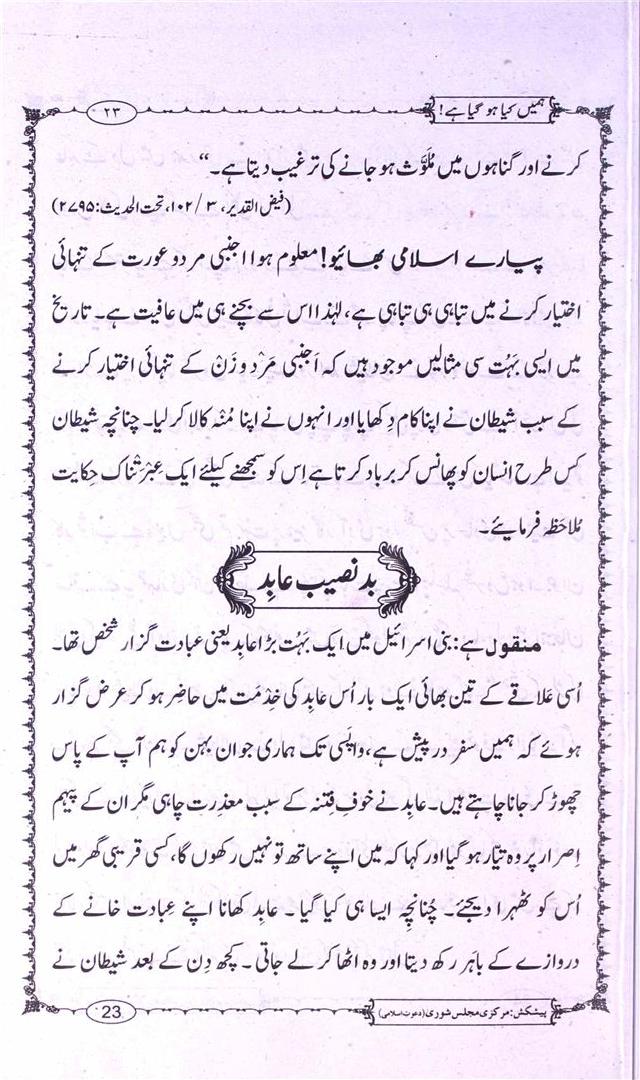 ہمیں کیا ہو گیا ہے! ۲۳
کرنے اور گناہوں میں مُلَوَّث ہو جانے کی ترغیب دیتا ہے۔“
(فیض القدیر، ۳ / ۱۰۲، تحت الحدیث: ۲۷۹۵)
پیارے اسلامی بھائیو! معلوم ہوا اجنبی مرد و عورت کے تنہائی
اختیار کرنے میں تباہی ہی تباہی ہے، لہٰذا اس سے بچنے ہی میں عافیت ہے۔ تاریخ
میں ایسی بَہُت سی مثالیں موجود ہیں کہ اَجنبی مَرْد و زَنْ کے تنہائی اختیار کرنے
کے سبب شیطان نے اپنا کام دِکھایا اور انہوں نے اپنا مُنْہ کالا کر لیا۔ چنانچہ شیطان
کس طرح انسان کو پھانس کر برباد کرتا ہے اِس کو سمجھنے کیلئے ایک عِبْرَتْناک حِکایت
مُلاحَظہ فرمایئے۔
بد نصیب عابِد
منقول ہے: بنی اسرائیل میں ایک بَہُت بڑا عابِد یعنی عبادت گزار شخص تھا۔
اُسی عَلاقے کے تین بھائی ایک بار اُس عابِد کی خِدْمَت میں حاضِر ہو کر عرض گزار
ہوئے کہ ہمیں سفر درپیش ہے، واپَسی تک ہماری جوان بہن کو ہم آپ کے پاس
چھوڑ کر جانا چاہتے ہیں۔ عابِد نے خوفِ فِتنہ کے سبب معذِرت چاہی مگر ان کے پیہم
اِصرار پر وہ تیّار ہو گیا اور کہا کہ میں اپنے ساتھ تو نہیں رکھوں گا، کسی قریبی گھر میں
اُس کو ٹھہرا دیجئے۔ چُنانچِہ ایسا ہی کیا گیا۔ عابِد کھانا اپنے عِبادت خانے کے
دروازے کے باہَر رکھ دیتا اور وہ اٹھا کر لے جاتی۔ کچھ دِن کے بعد شیطان نے
پیشکش: مرکزی مجلس شوریٰ (دعوتِ اسلامی) 23